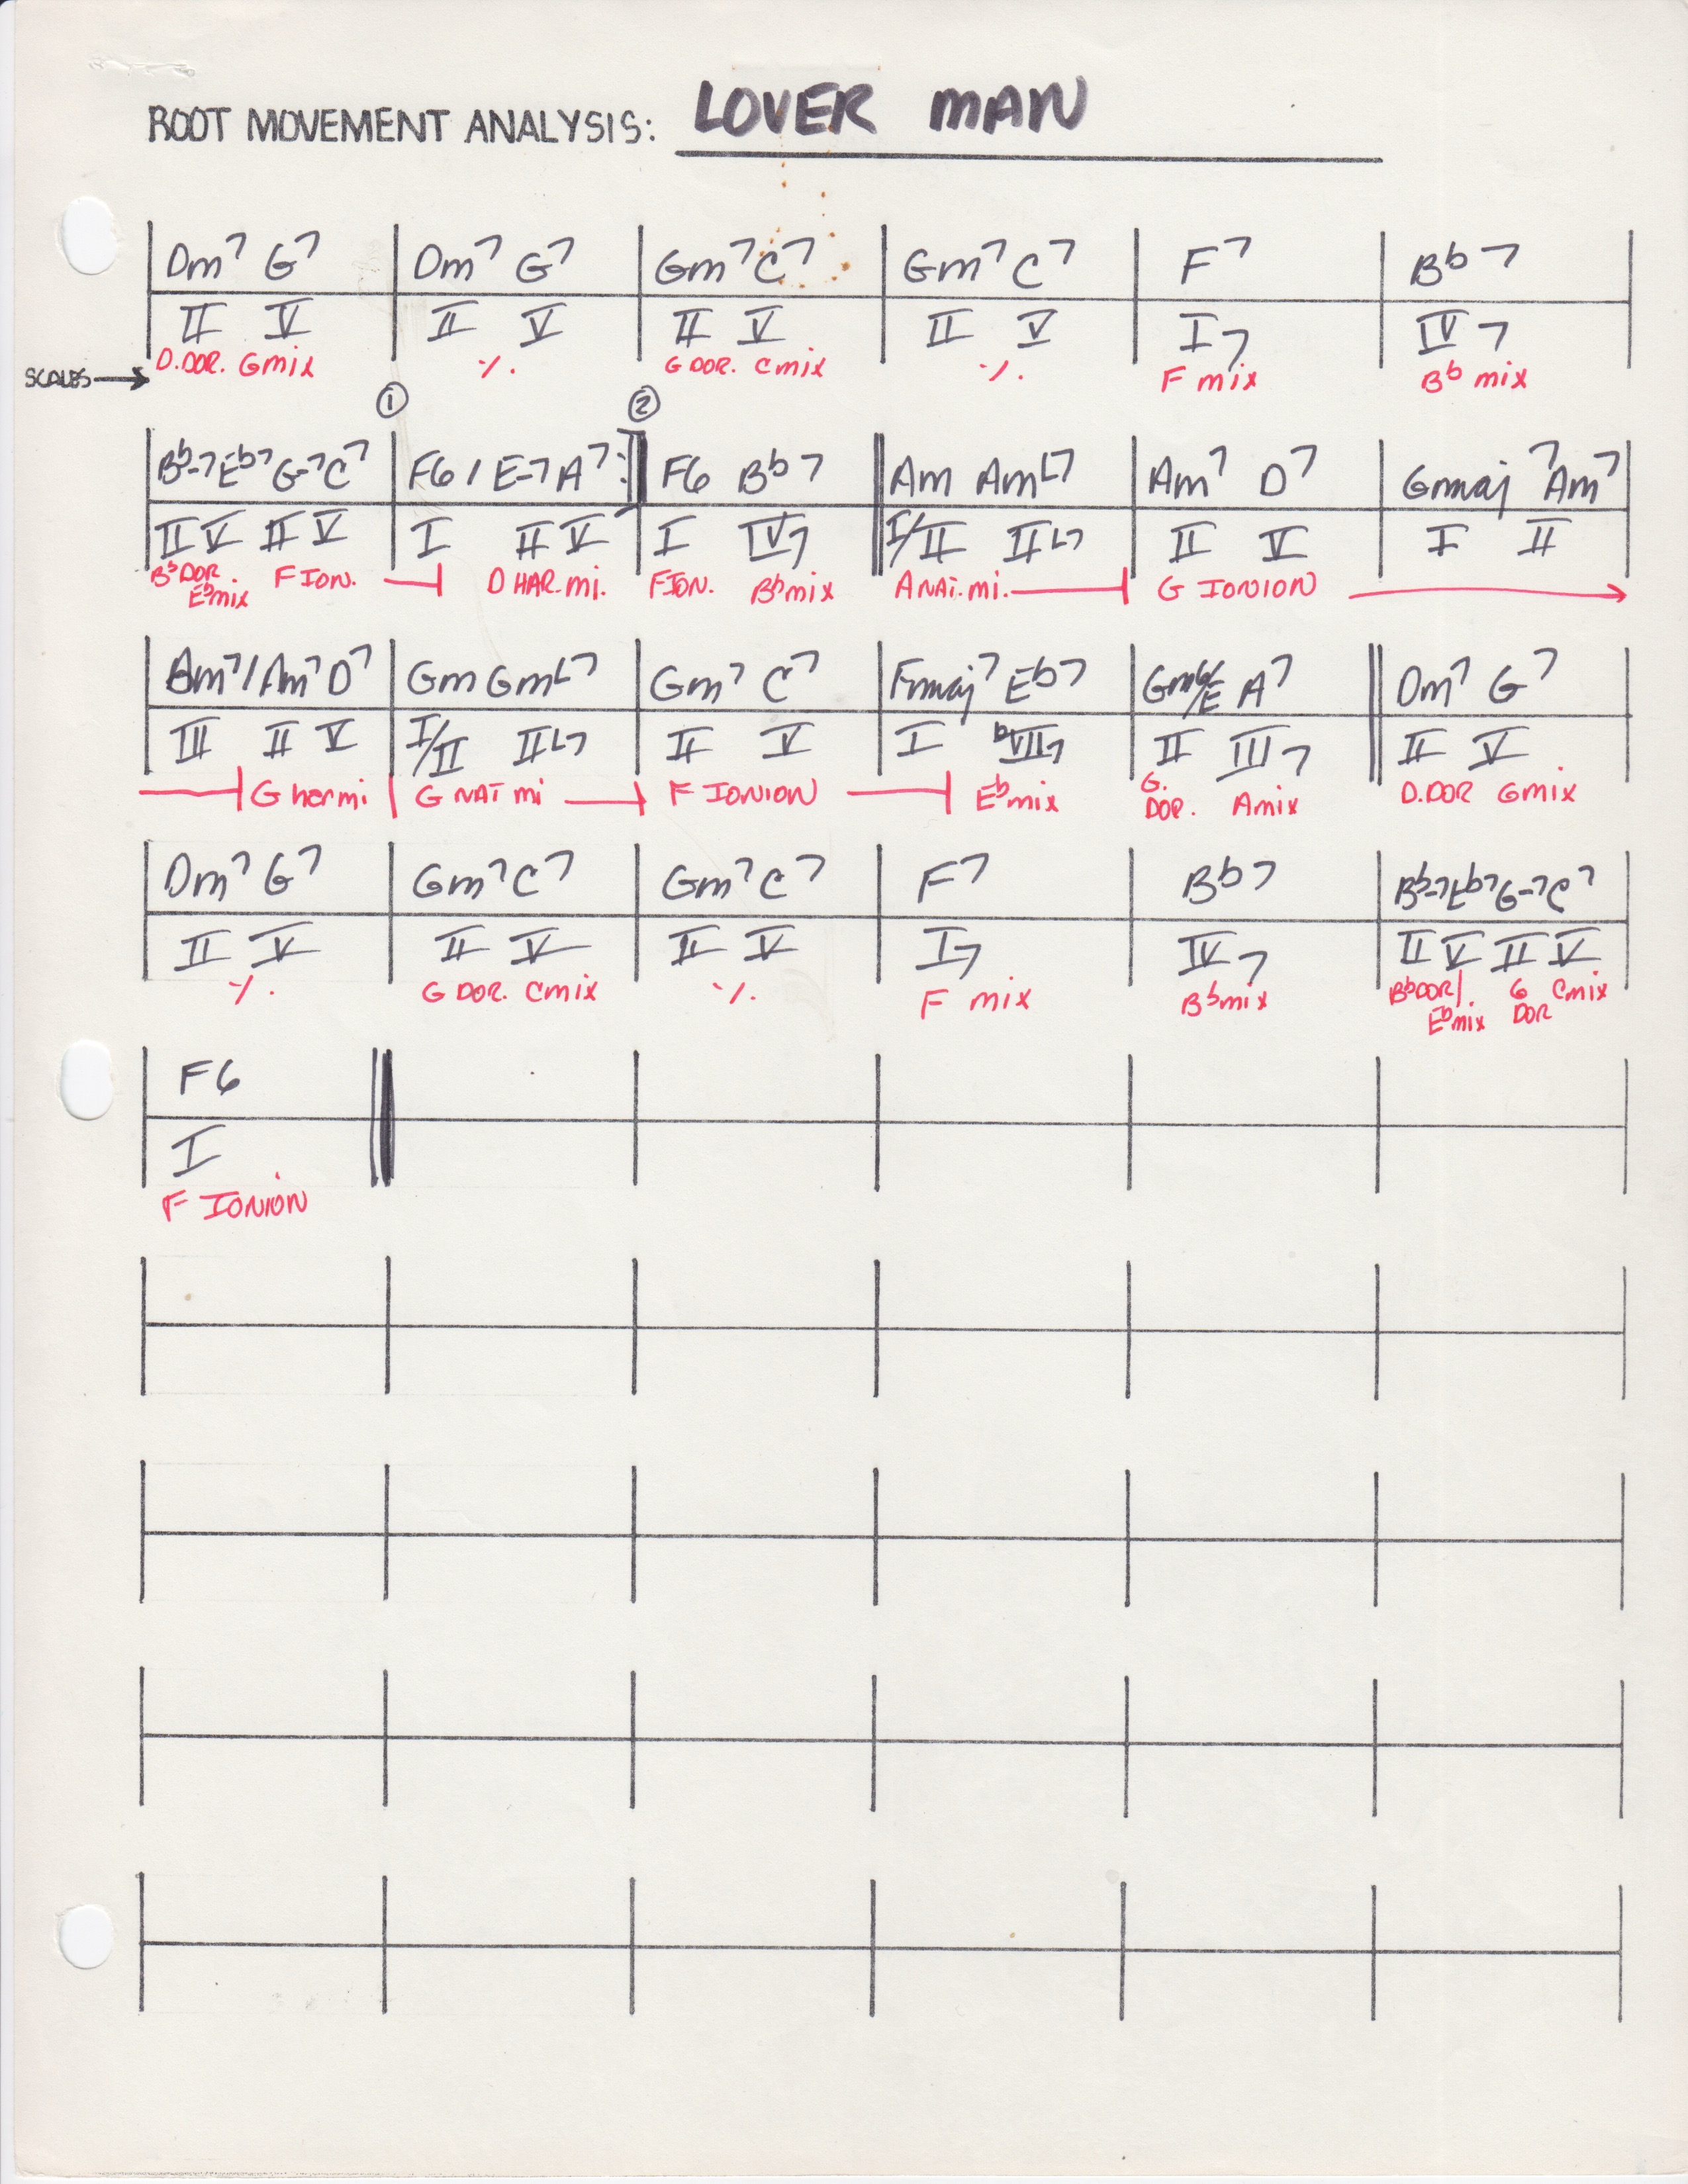 ROOT MOVEMENT ANALYSIS: LOVER MAN
Dm7 G7 Dm7 G7 Gm7 C7 Gm7 C7 F7 Bb7
II V II V II V II V I7 IV7
D.DOR. Gmix ٪. G DOR. Cmix ٪. F mix Bb mix
SCALES →
① ②
Bb-7 Eb7 G-7 C7 F6 / E-7 A7 :| F6 Bb7 Am AmL7 Am7 D7 Gmaj7 Am7
II V II V I II V I IV7 I/II IIL7 II V I II
Bb DOR Ebmix F ION. D HAR.mi. F ION. Bbmix A NAT.mi. G IONION
Bm7 / Am7 D7 Gm GmL7 Gm7 C7 Fmaj7 Eb7 Gm6/E A7 Dm7 G7
III II V I/II IIL7 II V I bVII7 II III7 II V
G har mi G NAT mi F IONION Ebmix G. DOR. Amix D.DOR Gmix
Dm7 G7 Gm7 C7 Gm7 C7 F7 Bb7 Bb-7 Eb7 G-7 C7
II V II V II V I7 IV7 II V II V
٪. G DOR. Cmix ٪. F mix Bbmix Bb DOR/. Ebmix G DOR Cmix
F6
I
F IONION